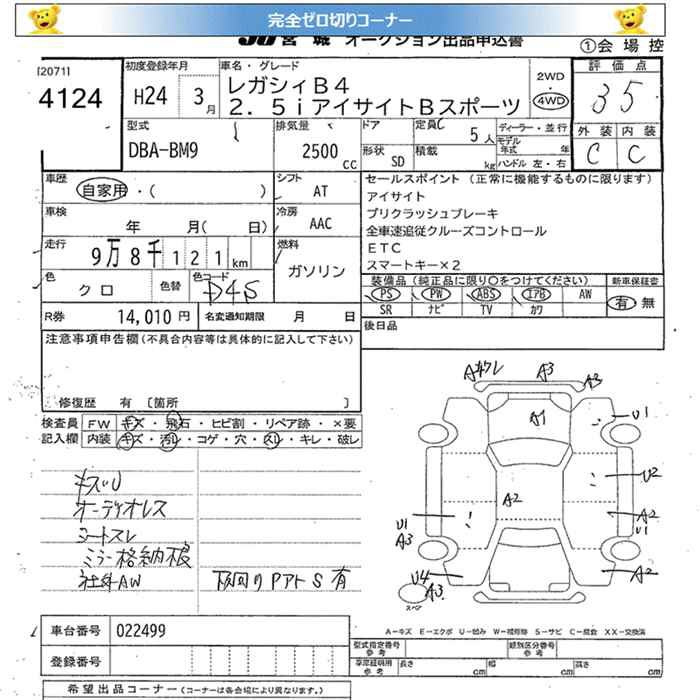 完全ゼロ切りコーナー
JU 宮城 オークション出品申込書
①会場控
[2071]
4124
初度登録年月
H24 3月
車名・グレード
レガシィB4
2.5iアイサイトBスポーツ
2WD
・
4WD
評価点
35
外装 内装
C C
型式
DBA-BM9
排気量
2500 cc
ドア
形状 SD
定員C 5人
積載 kg
ディーラー・並行
モデル年式 年
ハンドル 左・右
車歴 自家用・( )
シフト AT
車検 年 月( 日)
冷房 AAC
走行 9万8千121km
燃料 ガソリン
色 クロ
色替
色コード D4S
R券 14,010円
名変通知期限 月 日
セールスポイント (正常に機能するものに限ります)
アイサイト
プリクラッシュブレーキ
全車速追従クルーズコントロール
ETC
スマートキー×2
装備品(純正品に限り○をつけてください)
新車保証書
PS PW ABS エアB AW
有 無
SR ナビ TV カワ
後日品
注意事項申告欄(不具合内容等は具体的に記入して下さい)
修復歴 有 〔箇所 〕
検査員 FW キズ・飛石・ヒビ割・リペア跡・×要
記入欄 内装 キズ・汚レ・コゲ・穴・スレ・キレ・破レ
キズU
オーディオレス
シートスレ
ミラー格納根
社外AW
下回りPアトS有
A3
A3
A1
U1
U2
A2
A2
U1
U1
A3
U4
A3
A2
スペア
A-キズ E-エクボ U-凹み W-補修跡 S-サビ C-腐食 XX-交換済
車台番号 022499
登録番号
型式指定番号参考
類別区分番号参考
車庫証明用参考 長さ cm 幅 cm 高さ cm
希望出品コーナー(コーナーは各会場により異なります。)